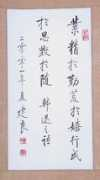 業精於勤荒於嬉行成
於思毀於隨 韓退之語
年夏建良